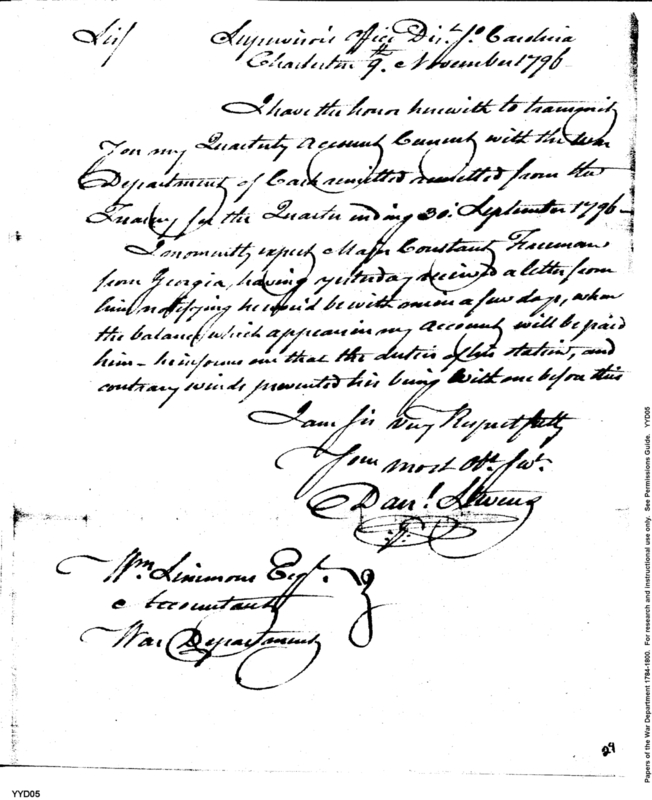 Sir/ Supervisor's Office Dist. So. Carolina
Charleston 9th. November 1796
I have the honor herewith to transmit
You my Quarterly Account Current with the War
Department of Cash remitted remitted from the
Treasury for the Quarter ending 30: September 1796 -
I momently expect Major Constant Freeman
from Georgia, having yesterday received a letter from
him notifying he wou'd be with me in a few days, when
the balance which appears in my Account will be paid
him - he informs me that the duties of his station, and
contrary winds prevented his being with me before this
I am Sir very Respectfully
Your most Obt. Svt.
Danl. Stevens
Wm Simmons Esqr.
Accountant
War Department
29
Papers of the War Department 1784-1800. For research and instructional use only. See Permissions Guide. YYD05
YYD05